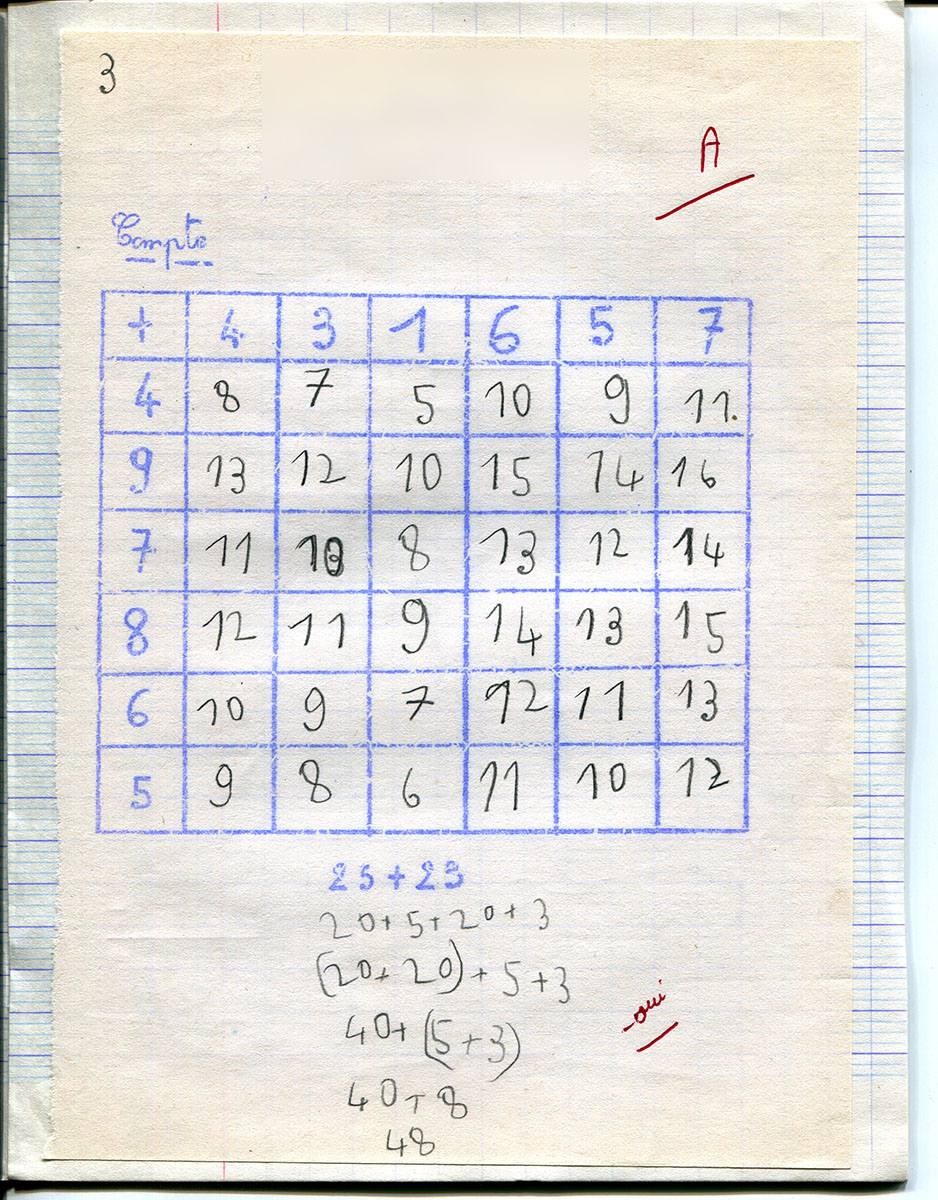 3
A
Compte
+ 4 3 1 6 5 7
4 8 7 5 10 9 11.
9 13 12 10 15 14 16
7 11 10 8 13 12 14
8 12 11 9 14 13 15
6 10 9 7 12 11 13
5 9 8 6 11 10 12
25+23
20+5+20+3
(20+20)+5+3
oui
40+(5+3)
40+8
48